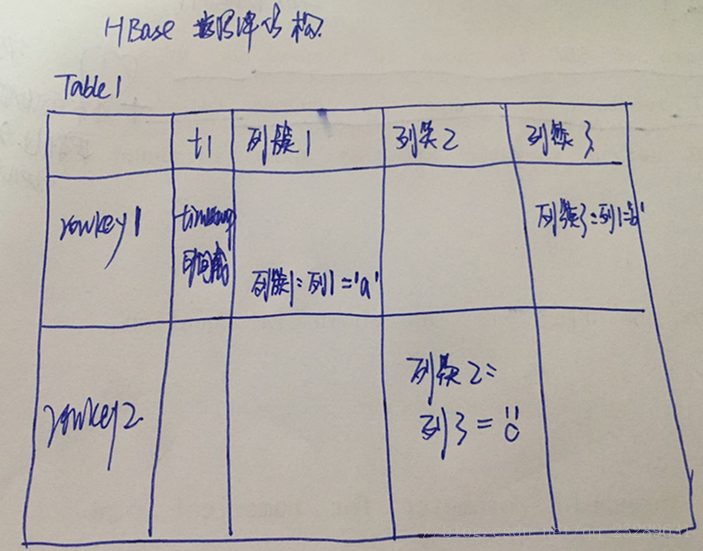 HBase 数据库结构
Table1
t1 列簇1 列簇2 列簇3
rowkey1 timestamp 列簇3:列1='b'
时间戳 列簇1:列1='a'
列簇2:
rowkey2 列3='c'